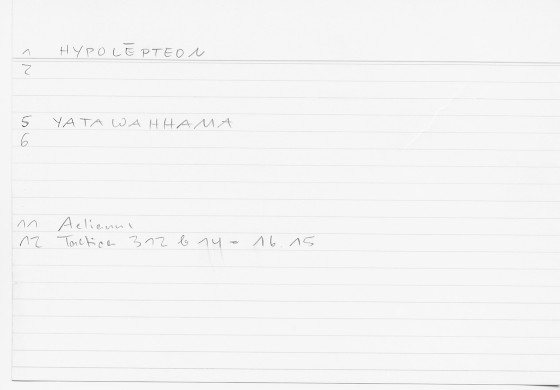 1 HYPOLĒPTEON
2
5 YATAWAHHAMA
6
11 Aelianus
12 Tactica 312 b 14 - 16.15